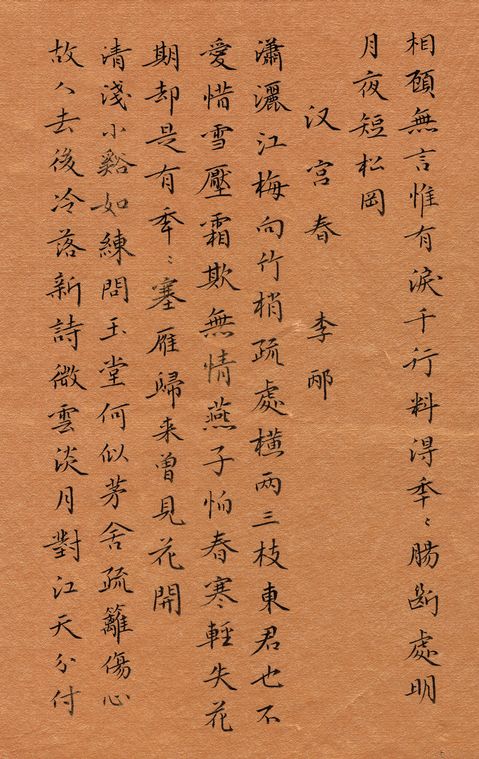 相顾無言惟有淚千行料得秊〻腸断處明
月夜短松岡
汉宮春 李邴
瀟灑江梅向竹梢疏處橫两三枝東君也不
愛惜雪壓霜欺無情燕子怕春寒輕失花
期却是有秊〻塞雁歸来曾見花開
清淺小谿如練問玉堂何似茅舍疏籬傷心
故人去後冷落新詩微雲淡月對江天分付